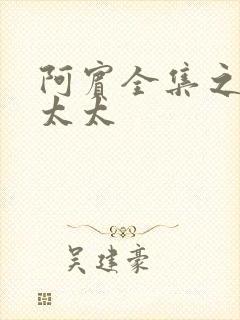 阿賓全集之
太太
吴建豪